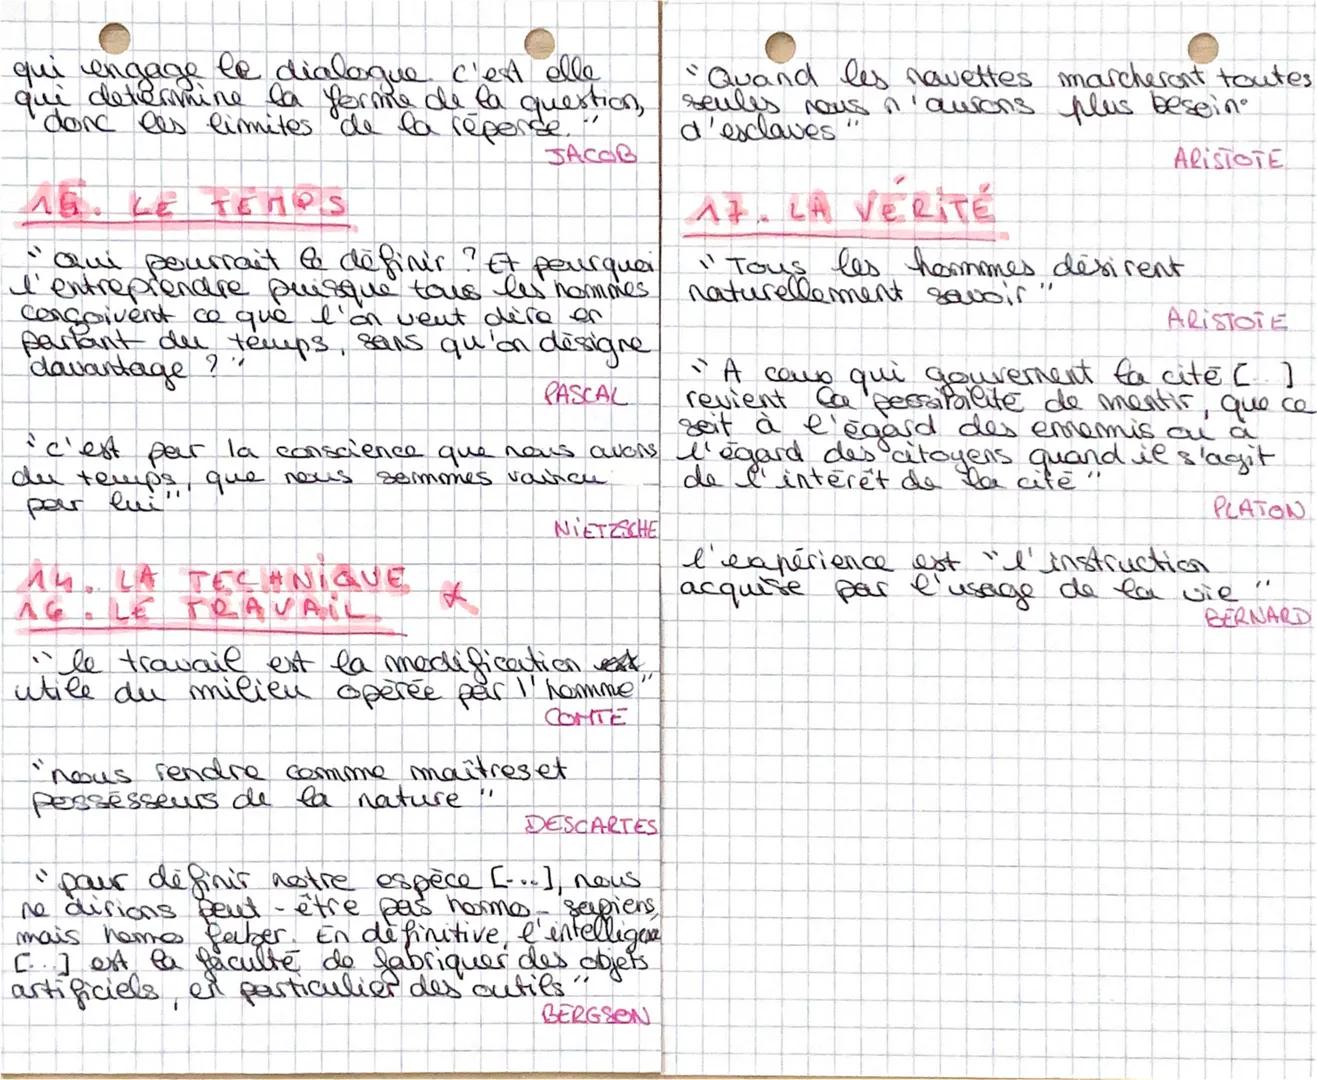 qui engage le dialogue c'est elle
qui détermine la forme de la question,
donc les limites de la réponse."
JACOB
15. LE TEMPS
"Qui pourrait le définir ? Et pourquoi
l'entreprendre puisque tous les hommes
conçoivent ce que l'on veut dire en
parlant du temps, sans qu'on désigne
davantage ?"
PASCAL
"c'est par la conscience que nous avons
du temps, que nous sommes vaincu
par lui"
NIETZSCHE
14. LA TECHNIQUE
16. LE TRAVAIL
"le travail est la modification
utile du milieu opérée par l'homme"
COMTE
"nous rendre comme maîtres et
possésseurs de la nature"
DESCARTES
"pour définir notre espèce [...], nous
ne dirions peut-être pas homo-sapiens,
mais homo faber. En définitive, l'intelligence
[...] est la faculté de fabriquer des objets
artificiels, en particulier des outils"
BERGSON
"Quand les navettes marcheront toutes
seules nous n'aurons plus besoin
d'esclaves"
ARISTOTE
17. LA VÉRITÉ
"Tous les hommes désirent
naturellement savoir"
ARISTOTE
"A ceux qui gouvernent la cité [...]
revient la possibilité de mentir, que ce
soit à l'égard des ennemis ou à
l'égard des citoyens quand il s'agit
de l'intérêt de la cité"
PLATON
l'expérience est "l'instruction
acquise par l'usage de la vie"
BERNARD